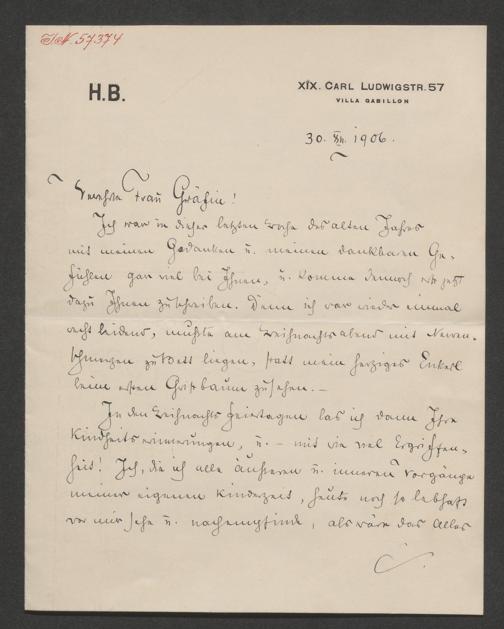 I.N. 57374
H.B.
XIX. CARL LUDWIGSTR. 57
VILLA GABILLON
30. XII. 1906.
Verehrte Frau Gräfin!
Ich war in dieser letzten Woche des alten Jahres
mit meinen Gedanken u. meinen dankbaren Ge-
fühlen gar viel bei Ihnen, u. komme dennoch erst jetzt
dazu Ihnen zu schreiben. Denn ich war wieder einmal
recht leidend, mußte am Weihnachtsabend mit Nerven-
schmerzen zu Bett liegen, statt mein herziges Enkerl
beim ersten Christbaum zu sehen. –
In den Weihnachtsfeiertagen las ich dann Ihre
Kindheitserinnerungen, u. – mit wie viel Ergriffen-
heit! Ich, die ich alle äußeren u. inneren Vorgänge
meiner eigenen Kinderzeit, heute noch so lebhaft
vor mir sehe u. nachempfinde, als wäre das Alles